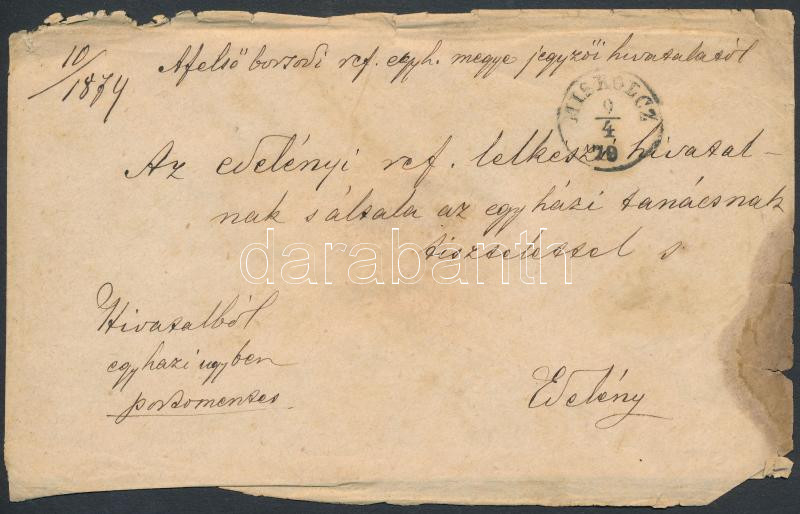 10/1879
A felső borsodi ref. egyh. megye jegyzői hivatalától
MISKOLCZ
9/4
79
Az edelényi ref. lelkészi hivatal-
nak s általa az egyházi tanácsnak
tisztelettel s
darabanth
Hivatalból
egyházi ügyben
portomentes
Edelény